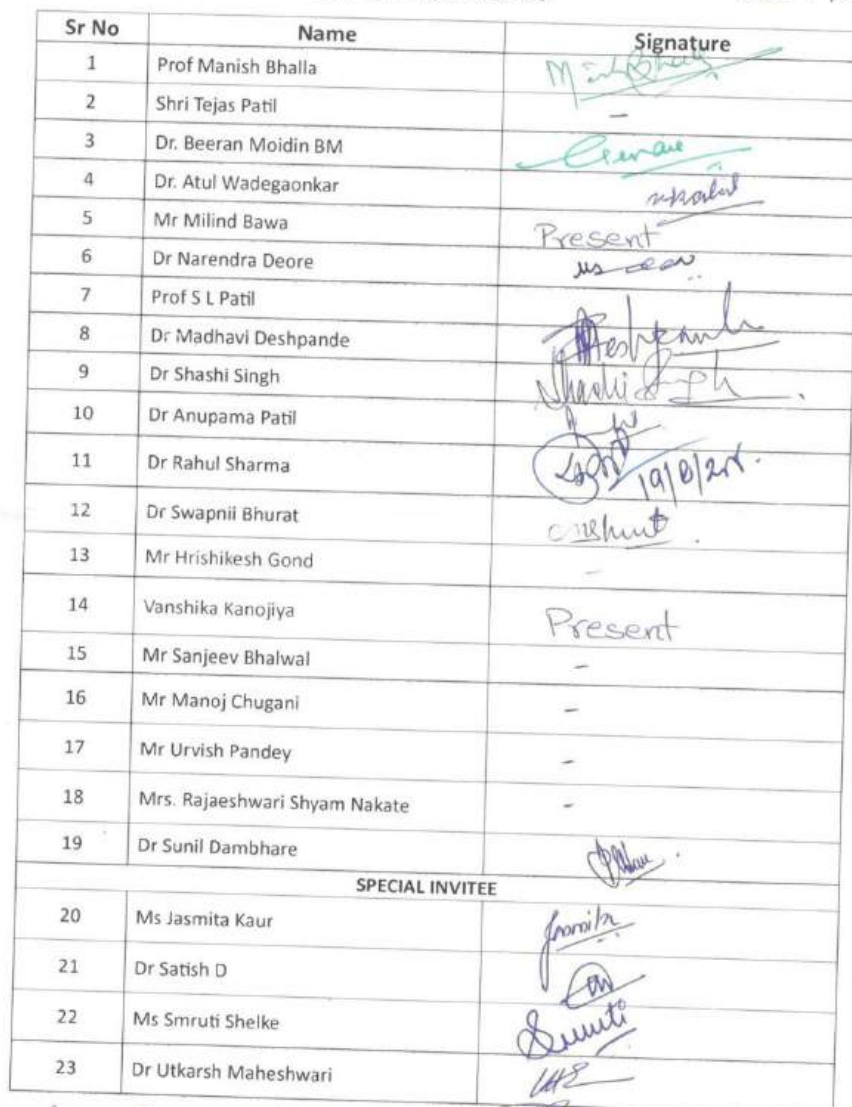 Sr No Name Signature
1 Prof Manish Bhalla
2 Shri Tejas Patil -
3 Dr. Beeran Moidin BM
4 Dr. Atul Wadegaonkar
5 Mr Milind Bawa Present
6 Dr Narendra Deore
7 Prof S L Patil
8 Dr Madhavi Deshpande
9 Dr Shashi Singh Shashi Singh
10 Dr Anupama Patil
11 Dr Rahul Sharma
12 Dr Swapnii Bhurat
13 Mr Hrishikesh Gond -
14 Vanshika Kanojiya Present
15 Mr Sanjeev Bhalwal -
16 Mr Manoj Chugani -
17 Mr Urvish Pandey -
18 Mrs. Rajaeshwari Shyam Nakate -
19 Dr Sunil Dambhare
SPECIAL INVITEE
20 Ms Jasmita Kaur
21 Dr Satish D
22 Ms Smruti Shelke Smruti
23 Dr Utkarsh Maheshwari